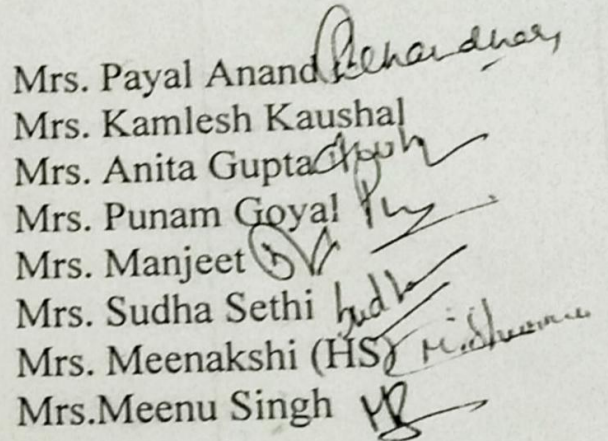 Mrs. Payal Anand
Mrs. Kamlesh Kaushal
Mrs. Anita Gupta
Mrs. Punam Goyal
Mrs. Manjeet
Mrs. Sudha Sethi
Mrs. Meenakshi (HS)
Mrs.Meenu Singh